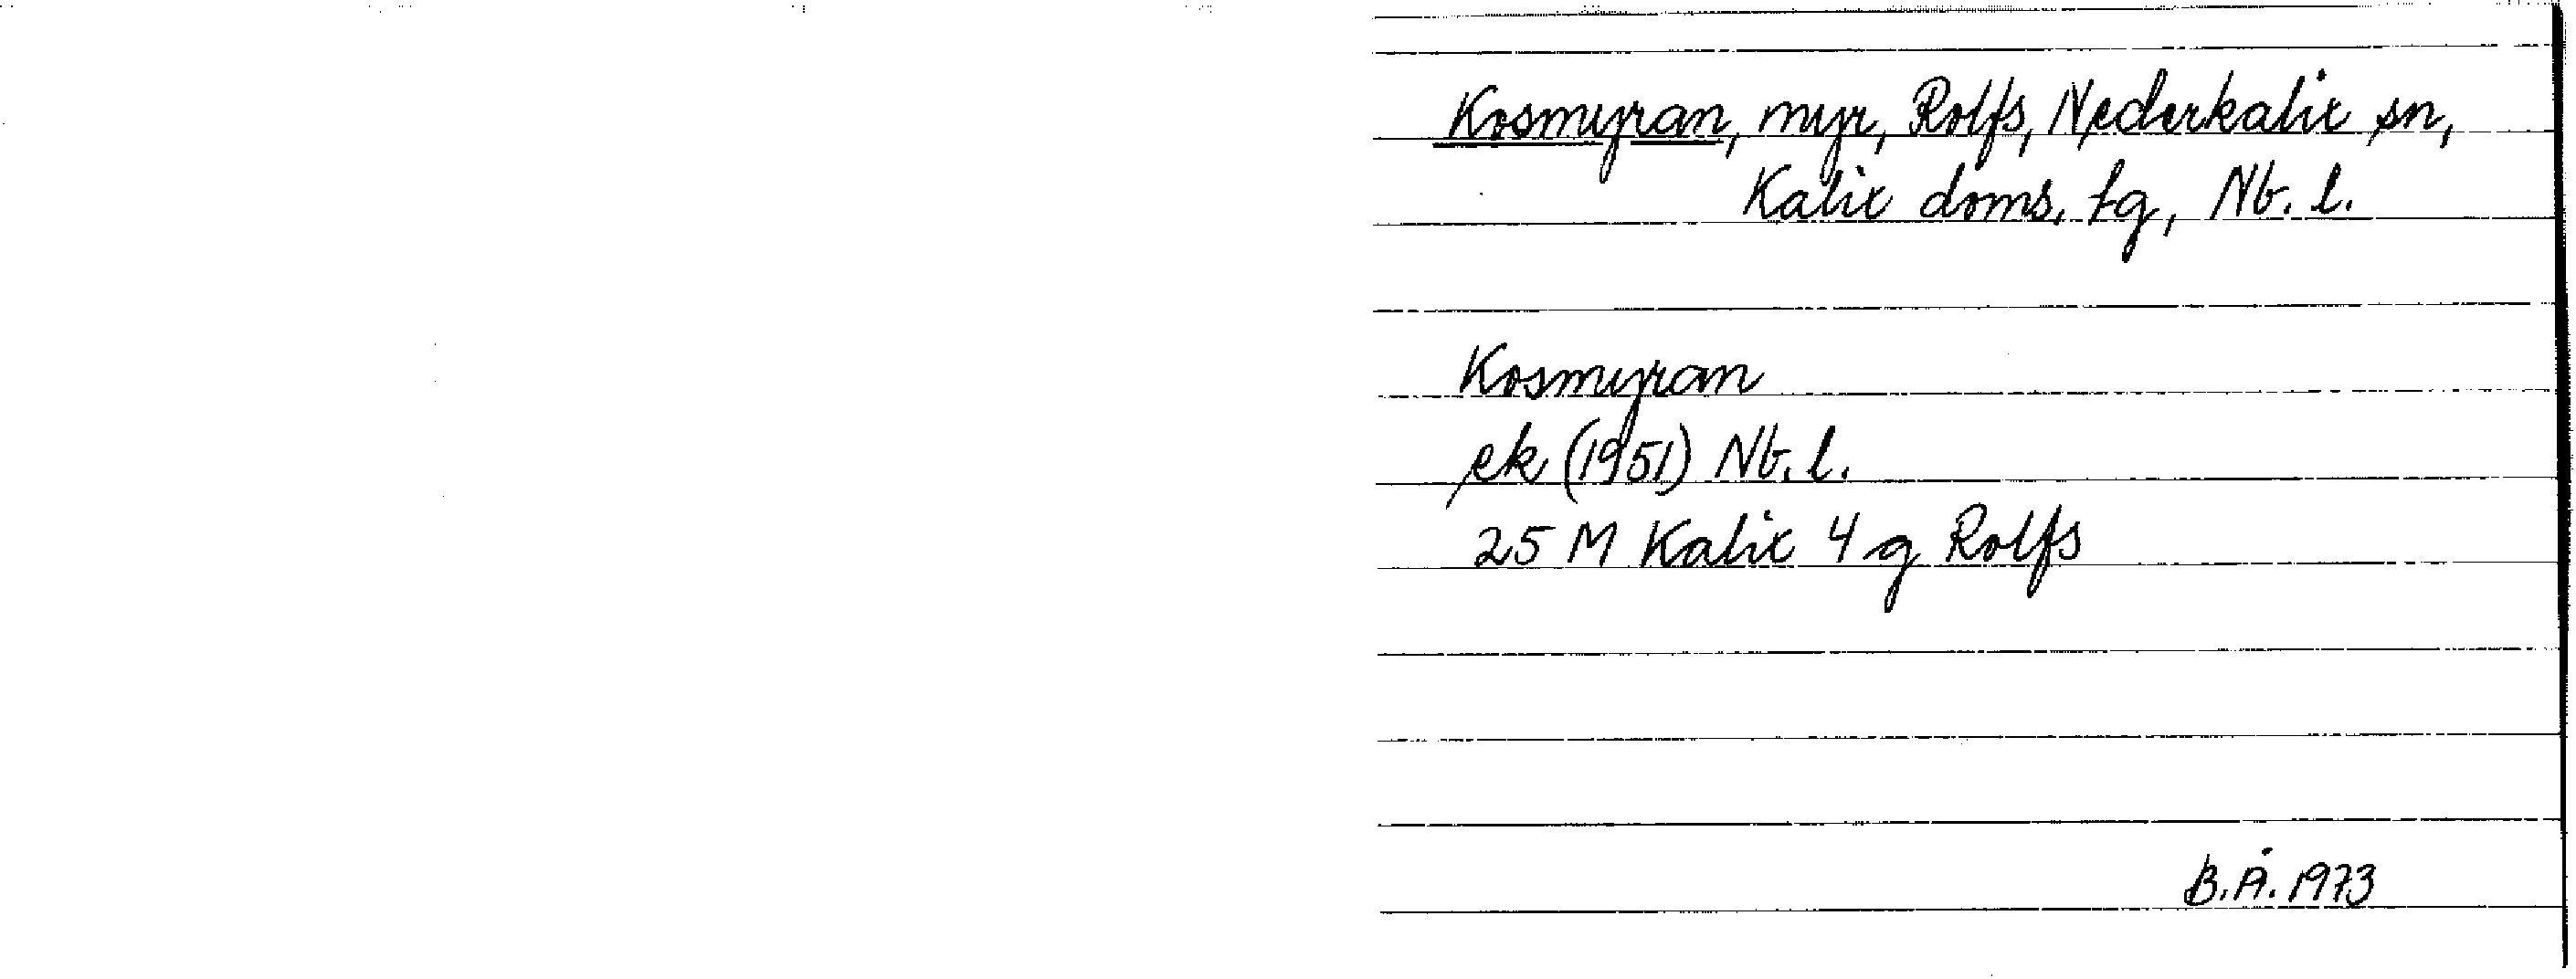 Kosmyran, myr, Rolfs, Nederkalix sn,
Kalix doms. tg, Nb. l.
Kosmyran
ek (1951) Nb. l.
25 M Kalix 4 g Rolfs
B.Å. 1973